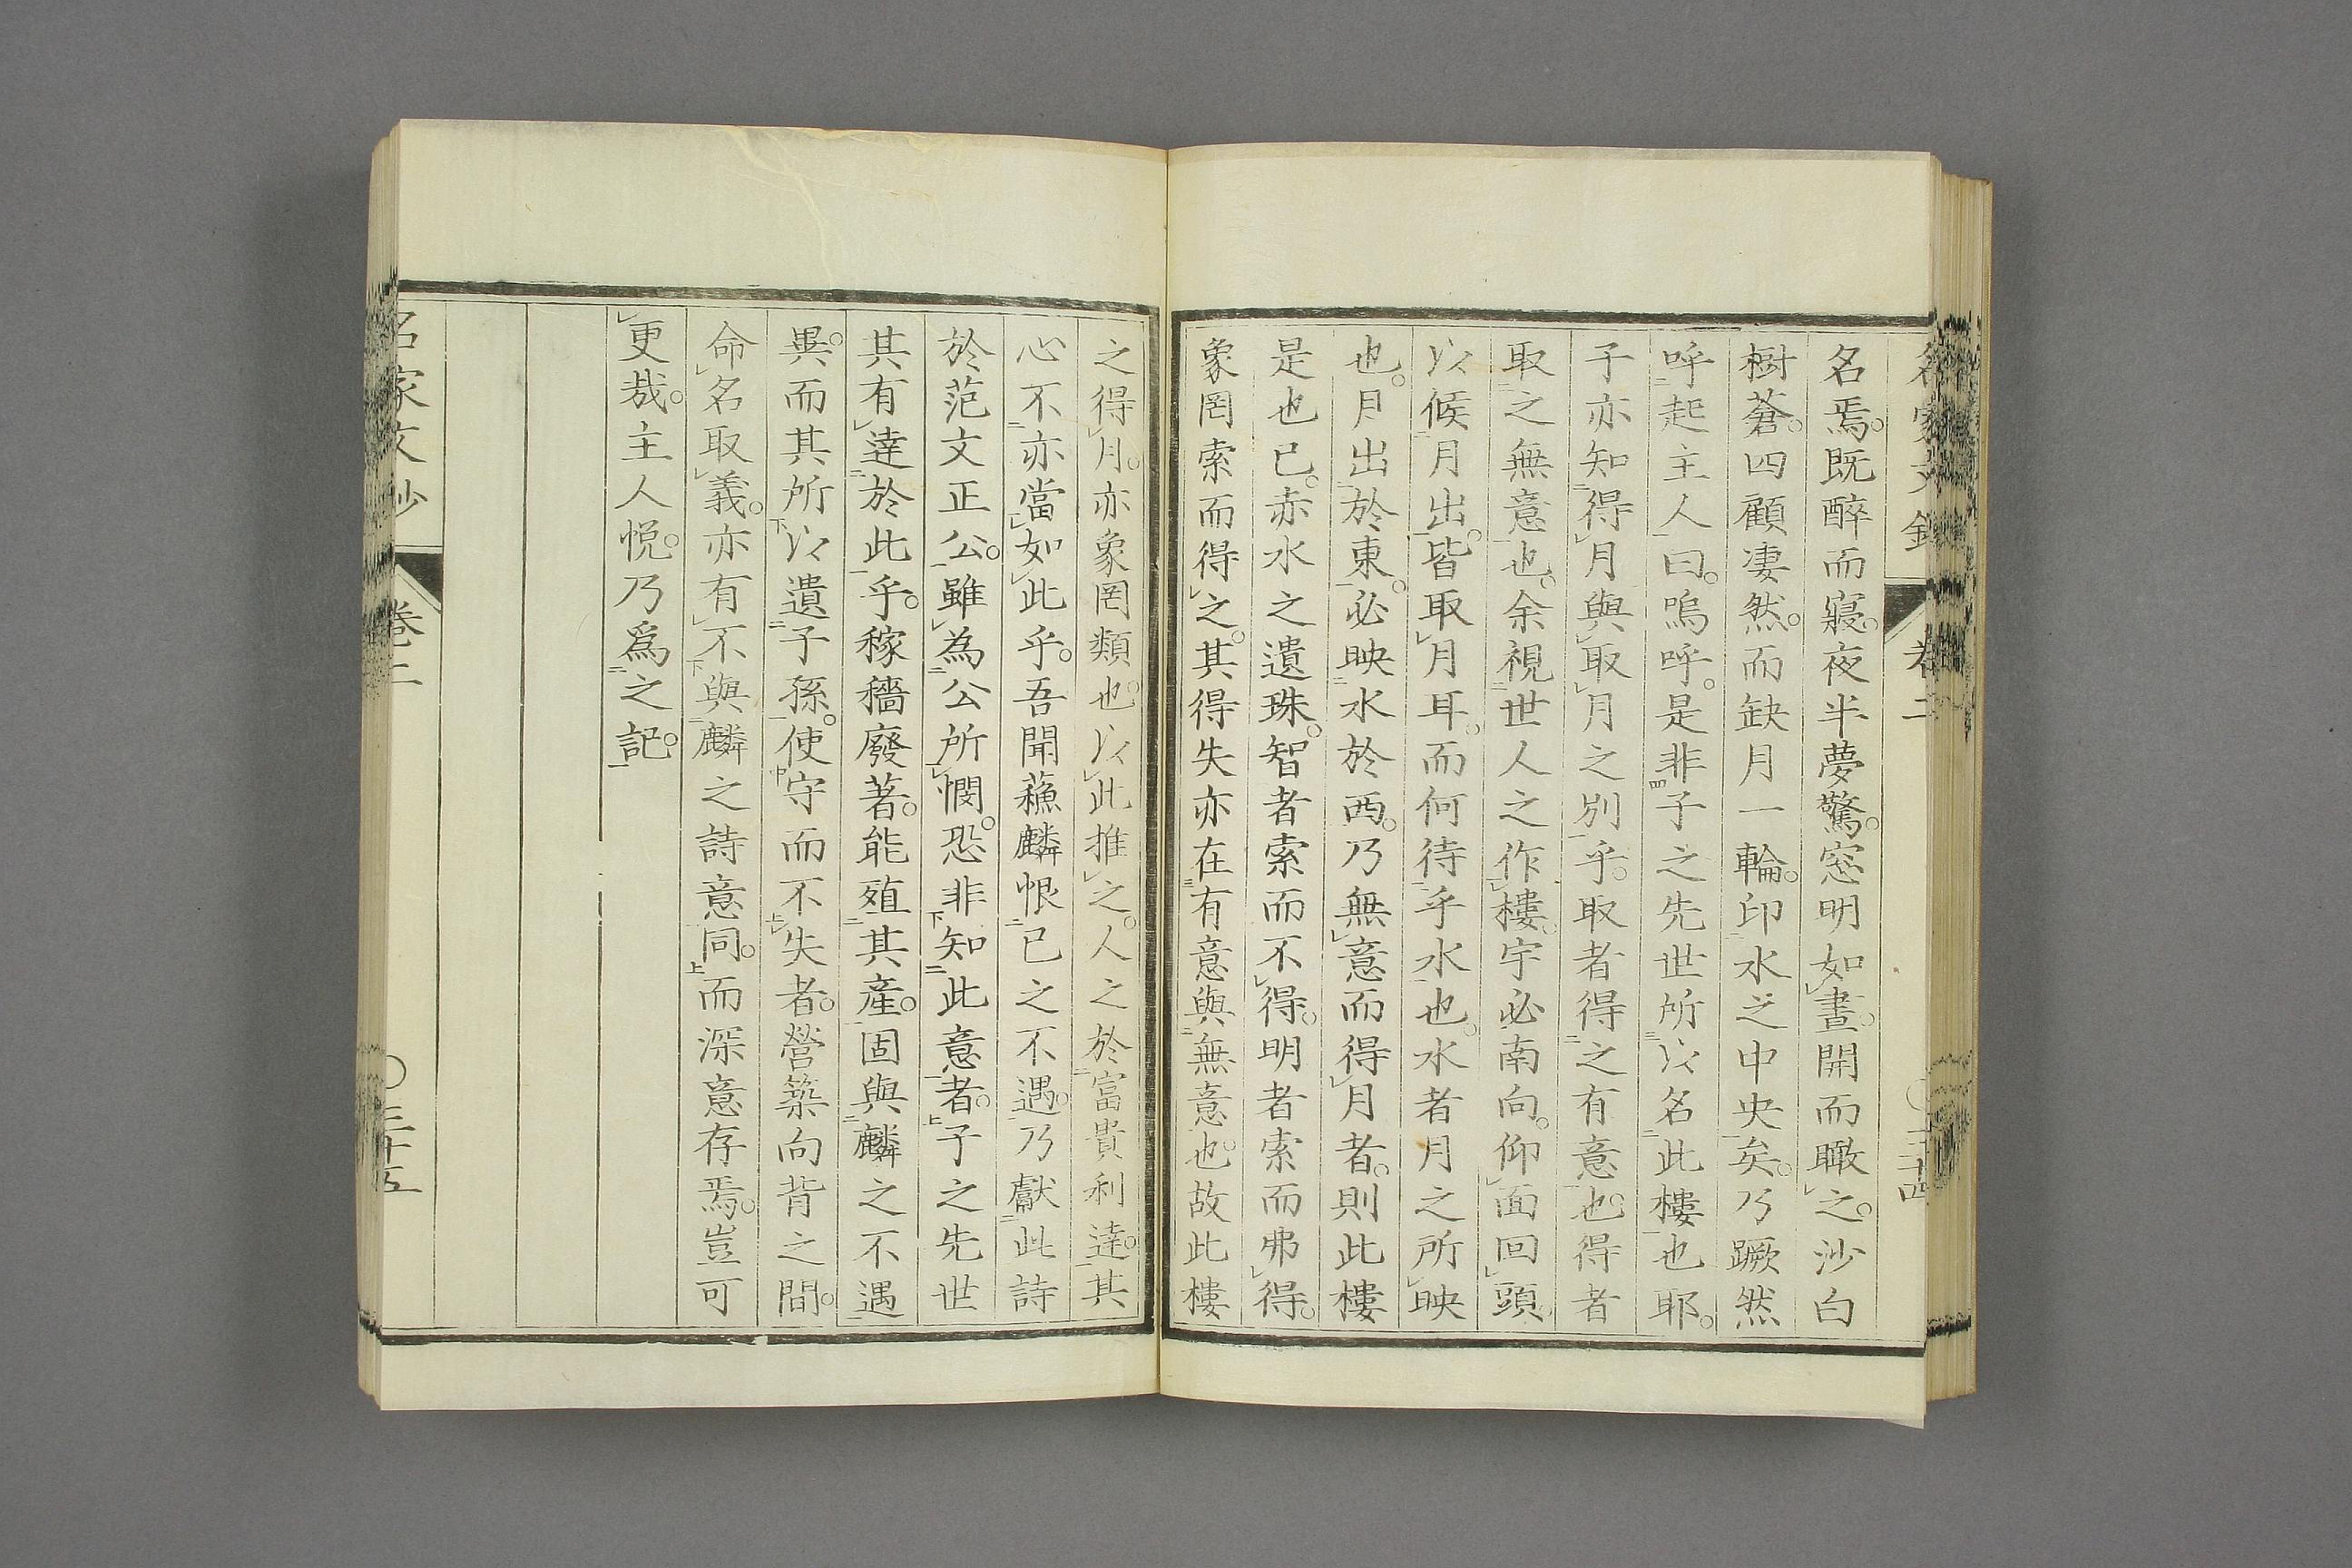 名家文鈔 卷二 三十四
名焉。既醉而寢。夜半夢驚。窓明如晝。開而瞰之。沙白
樹蒼。四顧凄然。而缺月一輪。印水之中央矣。乃蹶然
呼起主人曰。嗚呼。是非子之先世所以名此樓也耶。
子亦知得月與取月之別乎。取者得之有意也。得者
取之無意也。余視世人之作樓。宇必南向。仰面回頭。
以候月出。皆取月耳。而何待乎水也。水者月之所映
也。月出於東。必映水於西。乃無意而得月者。則此樓
是也已。赤水之遺珠。智者索而不得。明者索而弗得。
象罔索而得之。其得失亦在有意與無意也。故此樓
之得月。亦象罔類也。以此推之。人之於富貴利達。其
心不亦當如此乎。吾聞蘓麟恨已之不遇。乃獻此詩
於范文正公。雖為公所憫。恐非知此意者。子之先世
其有達於此乎。稼穡廢著。能殖其產。固與麟之不遇
異。而其所以遺子孫。使守而不失者。營築向背之間。
命名取義。亦有不與麟之詩意同。而深意存焉。豈可
更哉。主人悅。乃爲之記。
名家文鈔 卷二 三十五